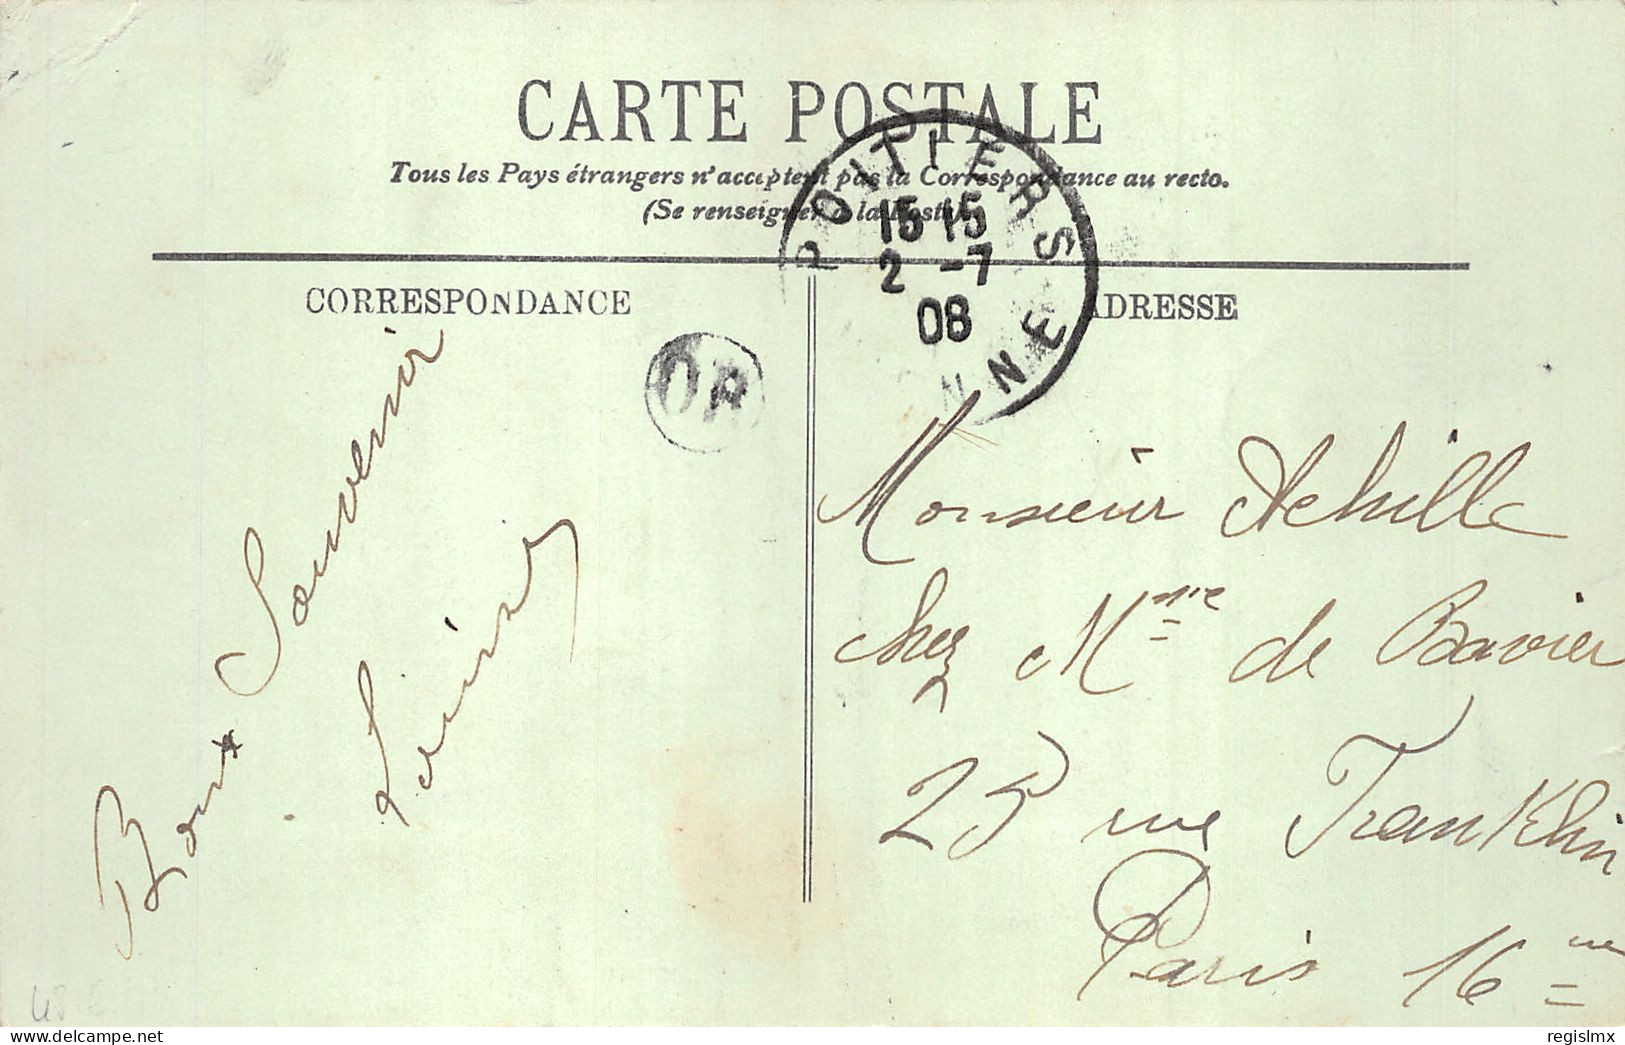 CARTE POSTALE
Tous les Pays étrangers n'acceptent pas la Correspondance au recto.
(Se renseigner à la Poste).
POITIERS
15 15
2 -7
08
NNE
CORRESPONDANCE
ADRESSE
OR
Bon Souvenir
Louise
Monsieur Achille
chez Mme de Bavier
25 rue Franklin
Paris 16me
delcampe.net
regislmx